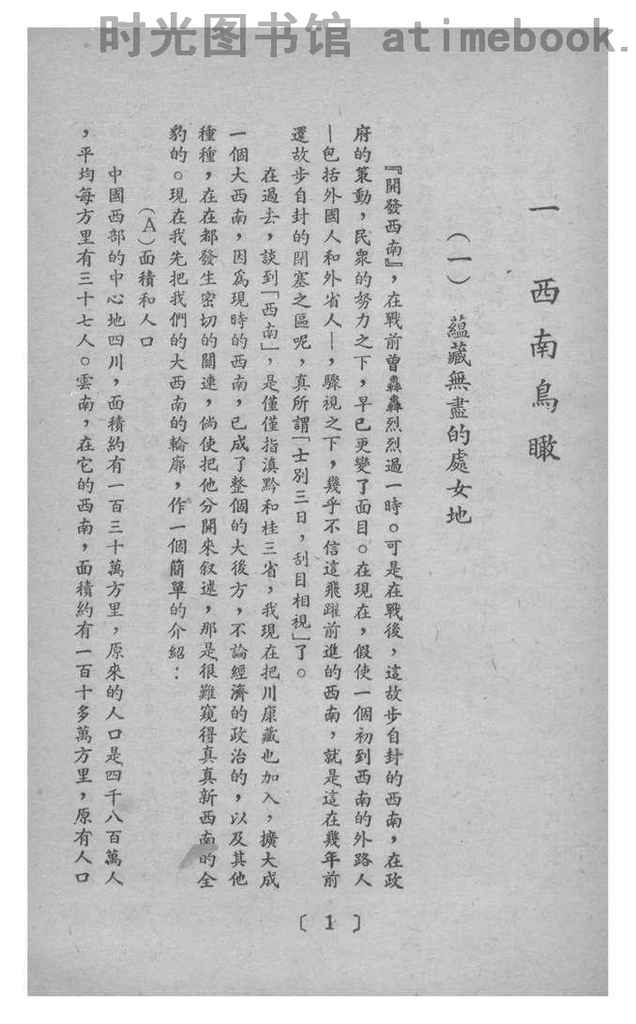 时光图书馆 atimebook.
一 西南鳥瞰
（一） 蘊藏無盡的處女地
『開發西南』，在戰前曾轟轟烈烈過一時。可是在戰後，這故步自封的西南，在政
府的策動，民衆的努力之下，早已更變了面目。在現在，假使一個初到西南的外路人
—包括外國人和外省人—，驟視之下，幾乎不信這飛躍前進的西南，就是這在幾年前
還故步自封的閉塞之區呢，真所謂「士別三日，刮目相視」了。
在過去，談到「西南」，是僅僅指滇黔和桂三省，我現在把川康藏也加入，擴大成
一個大西南，因爲現時的西南，已成了整個的大後方，不論經濟的政治的，以及其他
種種，在在都發生密切的關連，倘使把他分開來叙述，那是很難窺得真真新西南的全
豹的。現在我先把我們的大西南的輪廓，作一個簡單的介紹：
（A）面積和人口
中國西部的中心地四川，面積約有一百三十萬方里，原來的人口是四千八百萬人
，平均每方里有三十七人。雲南，在它的西南，面積約有一百十多萬方里，原有人口
〔 1 〕